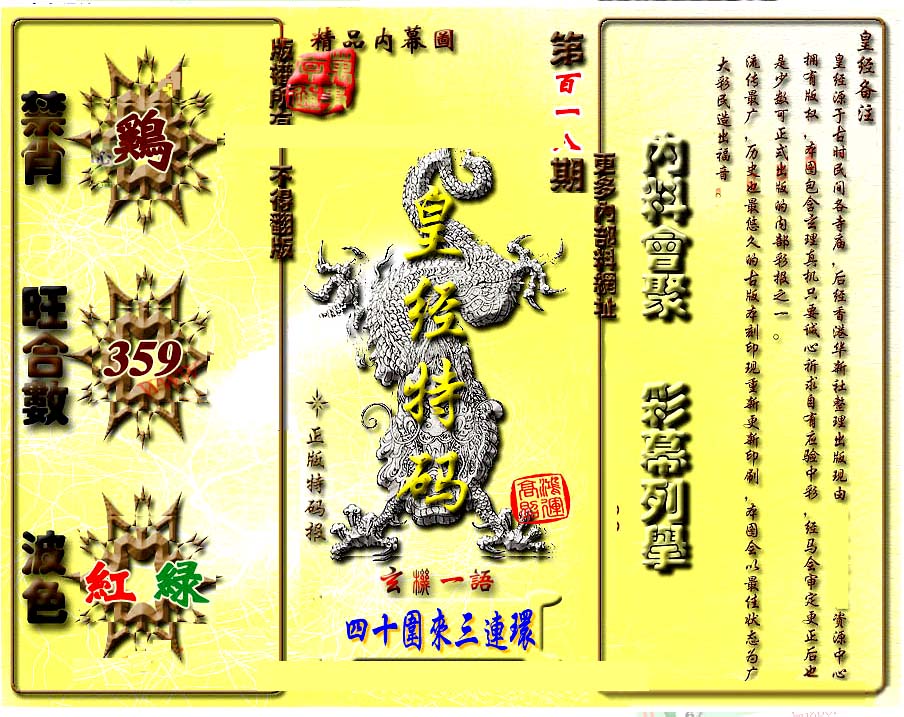 精品内幕圖
版權所有
不得翻版
第百一八期
更多內部料網址
禁肖
鷄
旺合數
359
波色
紅 綠
皇经特码
正版特码报
鴻運高照
玄機一語
四十圍來三連環
內料會聚
彩幕列擧
皇经备注
皇经源于古时民间各寺庙，后经香港华新社整理出版现由 资源中心
拥有版权，本图包含玄理真机只要诚心祈求自有应验中彩，经马会审定更正后也
是少数可正式出版的内部彩报之一。
流传最广，历史也最悠久的古版本刻印现重新更新印刷，本图会以最佳状态为广
大彩民造出福音